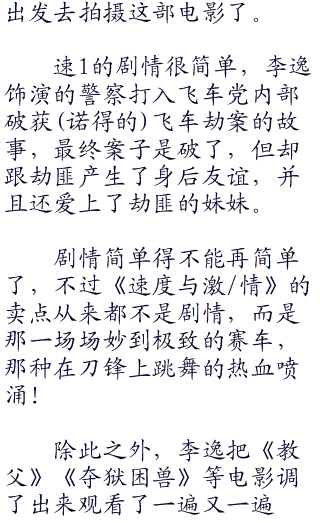 出发去拍摄这部电影了。
速1的剧情很简单，李逸
饰演的警察打入飞车党内部
破获(诺得的)飞车劫案的故
事，最终案子是破了，但却
跟劫匪产生了身后友谊，并
且还爱上了劫匪的妹妹。
剧情简单得不能再简单
了，不过《速度与激/情》的
卖点从来都不是剧情，而是
那一场场妙到极致的赛车，
那种在刀锋上跳舞的热血喷
涌！
除此之外，李逸把《教
父》《夺狱困兽》等电影调
了出来观看了一遍又一遍